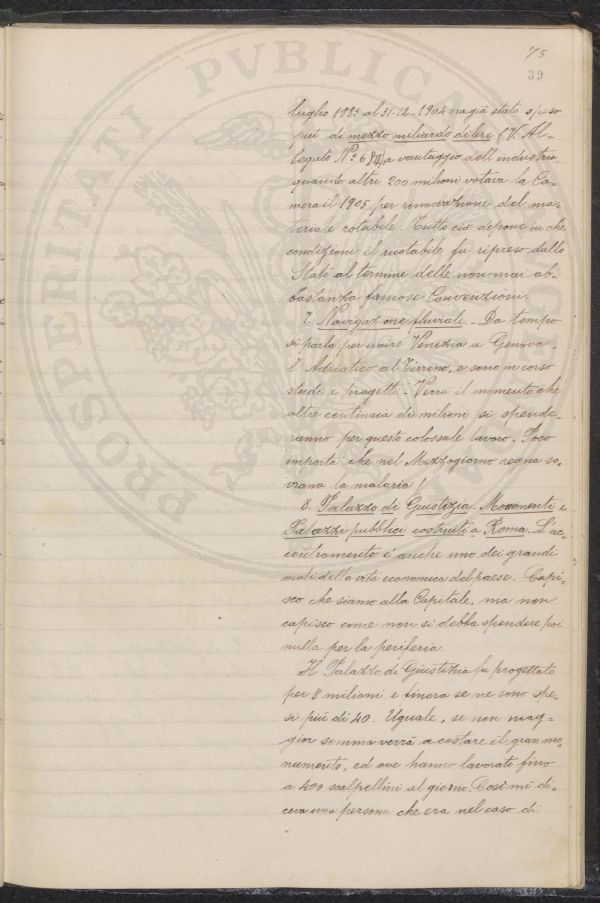 75
39
luglio 1885 al 31-12-1904 era già stato speso
più di mezzo miliardo di lire (V. Al-
legato Nº 6 a vantaggio dell'industria
quando altri 200 milioni votava la Ca-
mera il 1905 per rinnovazione del ma-
teriale rotabile. Tutto ciò depone in che
condizioni il ruotabile fu ripreso dallo
Stato al termine delle non mai ab-
bastanza famose Convenzioni.
7. Navigazione fluviale - Da tempo
si parla per unire Venezia a Genova,
l'Adriatico al Tirreno, e sono in corso
studi e progetti - Verrà il momento che
oltre centinaia di milioni si spende-
ranno per questo colossale lavoro. Poco
importa che nel Mezzogiorno regna so-
vrana la malaria!
8. Palazzo di Giustizia. Monumenti e
Palazzi pubblici costruiti a Roma. L'ac-
centramento è anche uno dei grandi
mali della vita economica del paese. Capi-
sco che siamo alla Capitale, ma non
capisco come non si debba spendere poi
nulla per la periferia.
Il Palazzo di Giustizia fu progettato
per 8 milioni e finora se ne sono spe-
si più di 40. Uguale, se non mag-
gior somma verrà a costare il gran mo-
numento, ed ove hanno lavorato fino
a 400 scalpellini al giorno. Così mi di-
ceva una persona che era nel caso di
PROSPERITATI PVBLICAE